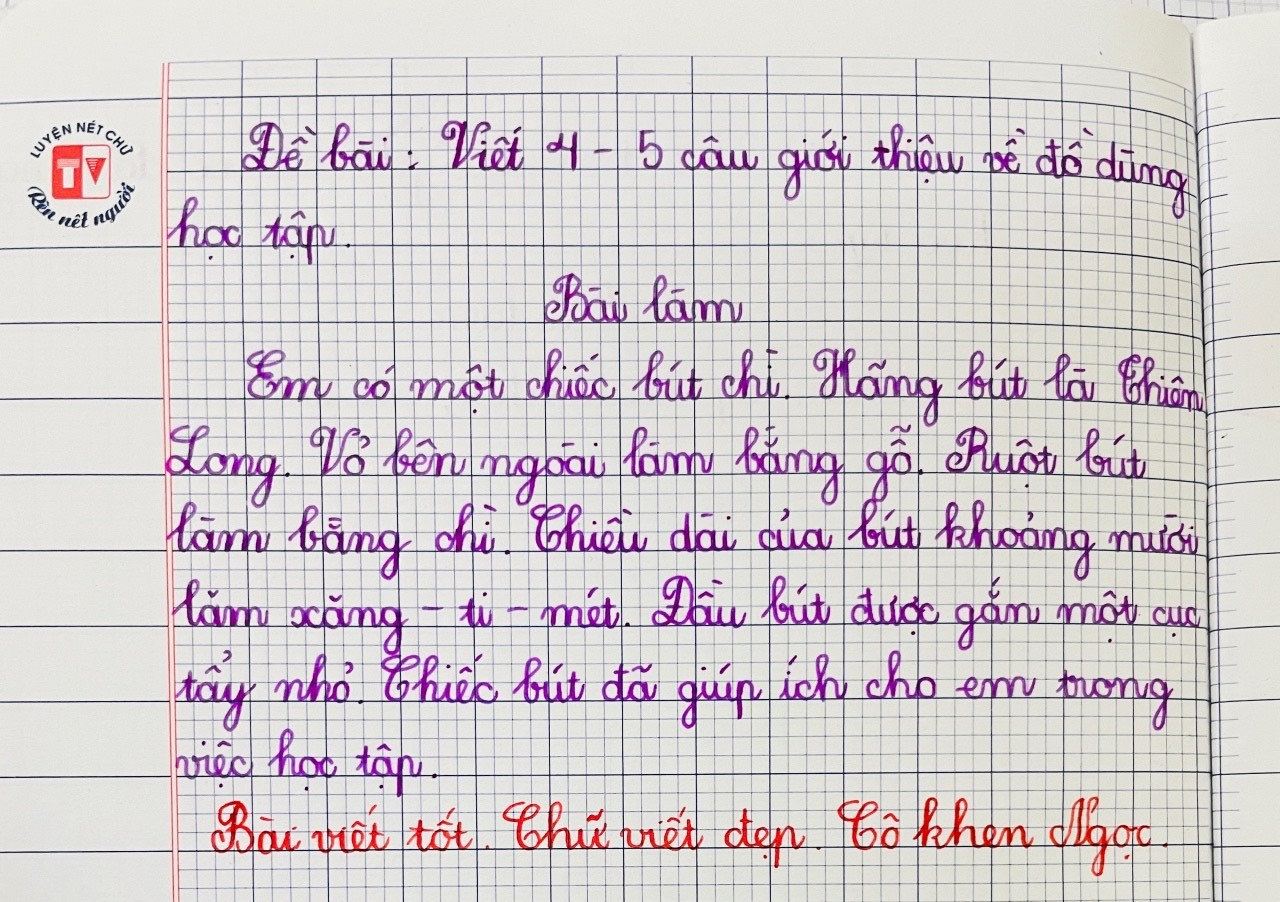 LUYỆN NÉT CHỮ
TV
Rèn nết người
Đề bài: Viết 4 - 5 câu giới thiệu về đồ dùng
học tập.
Bài làm
Em có một chiếc bút chì. Hãng bút là Thiên
Long. Vỏ bên ngoài làm bằng gỗ. Ruột bút
làm bằng chì. Chiều dài của bút khoảng mười
lăm xăng - ti - mét. Đầu bút được gắn một cục
tẩy nhỏ. Chiếc bút đã giúp ích cho em trong
việc học tập.
Bài viết tốt. Chữ viết đẹp. Cô khen Ngọc.